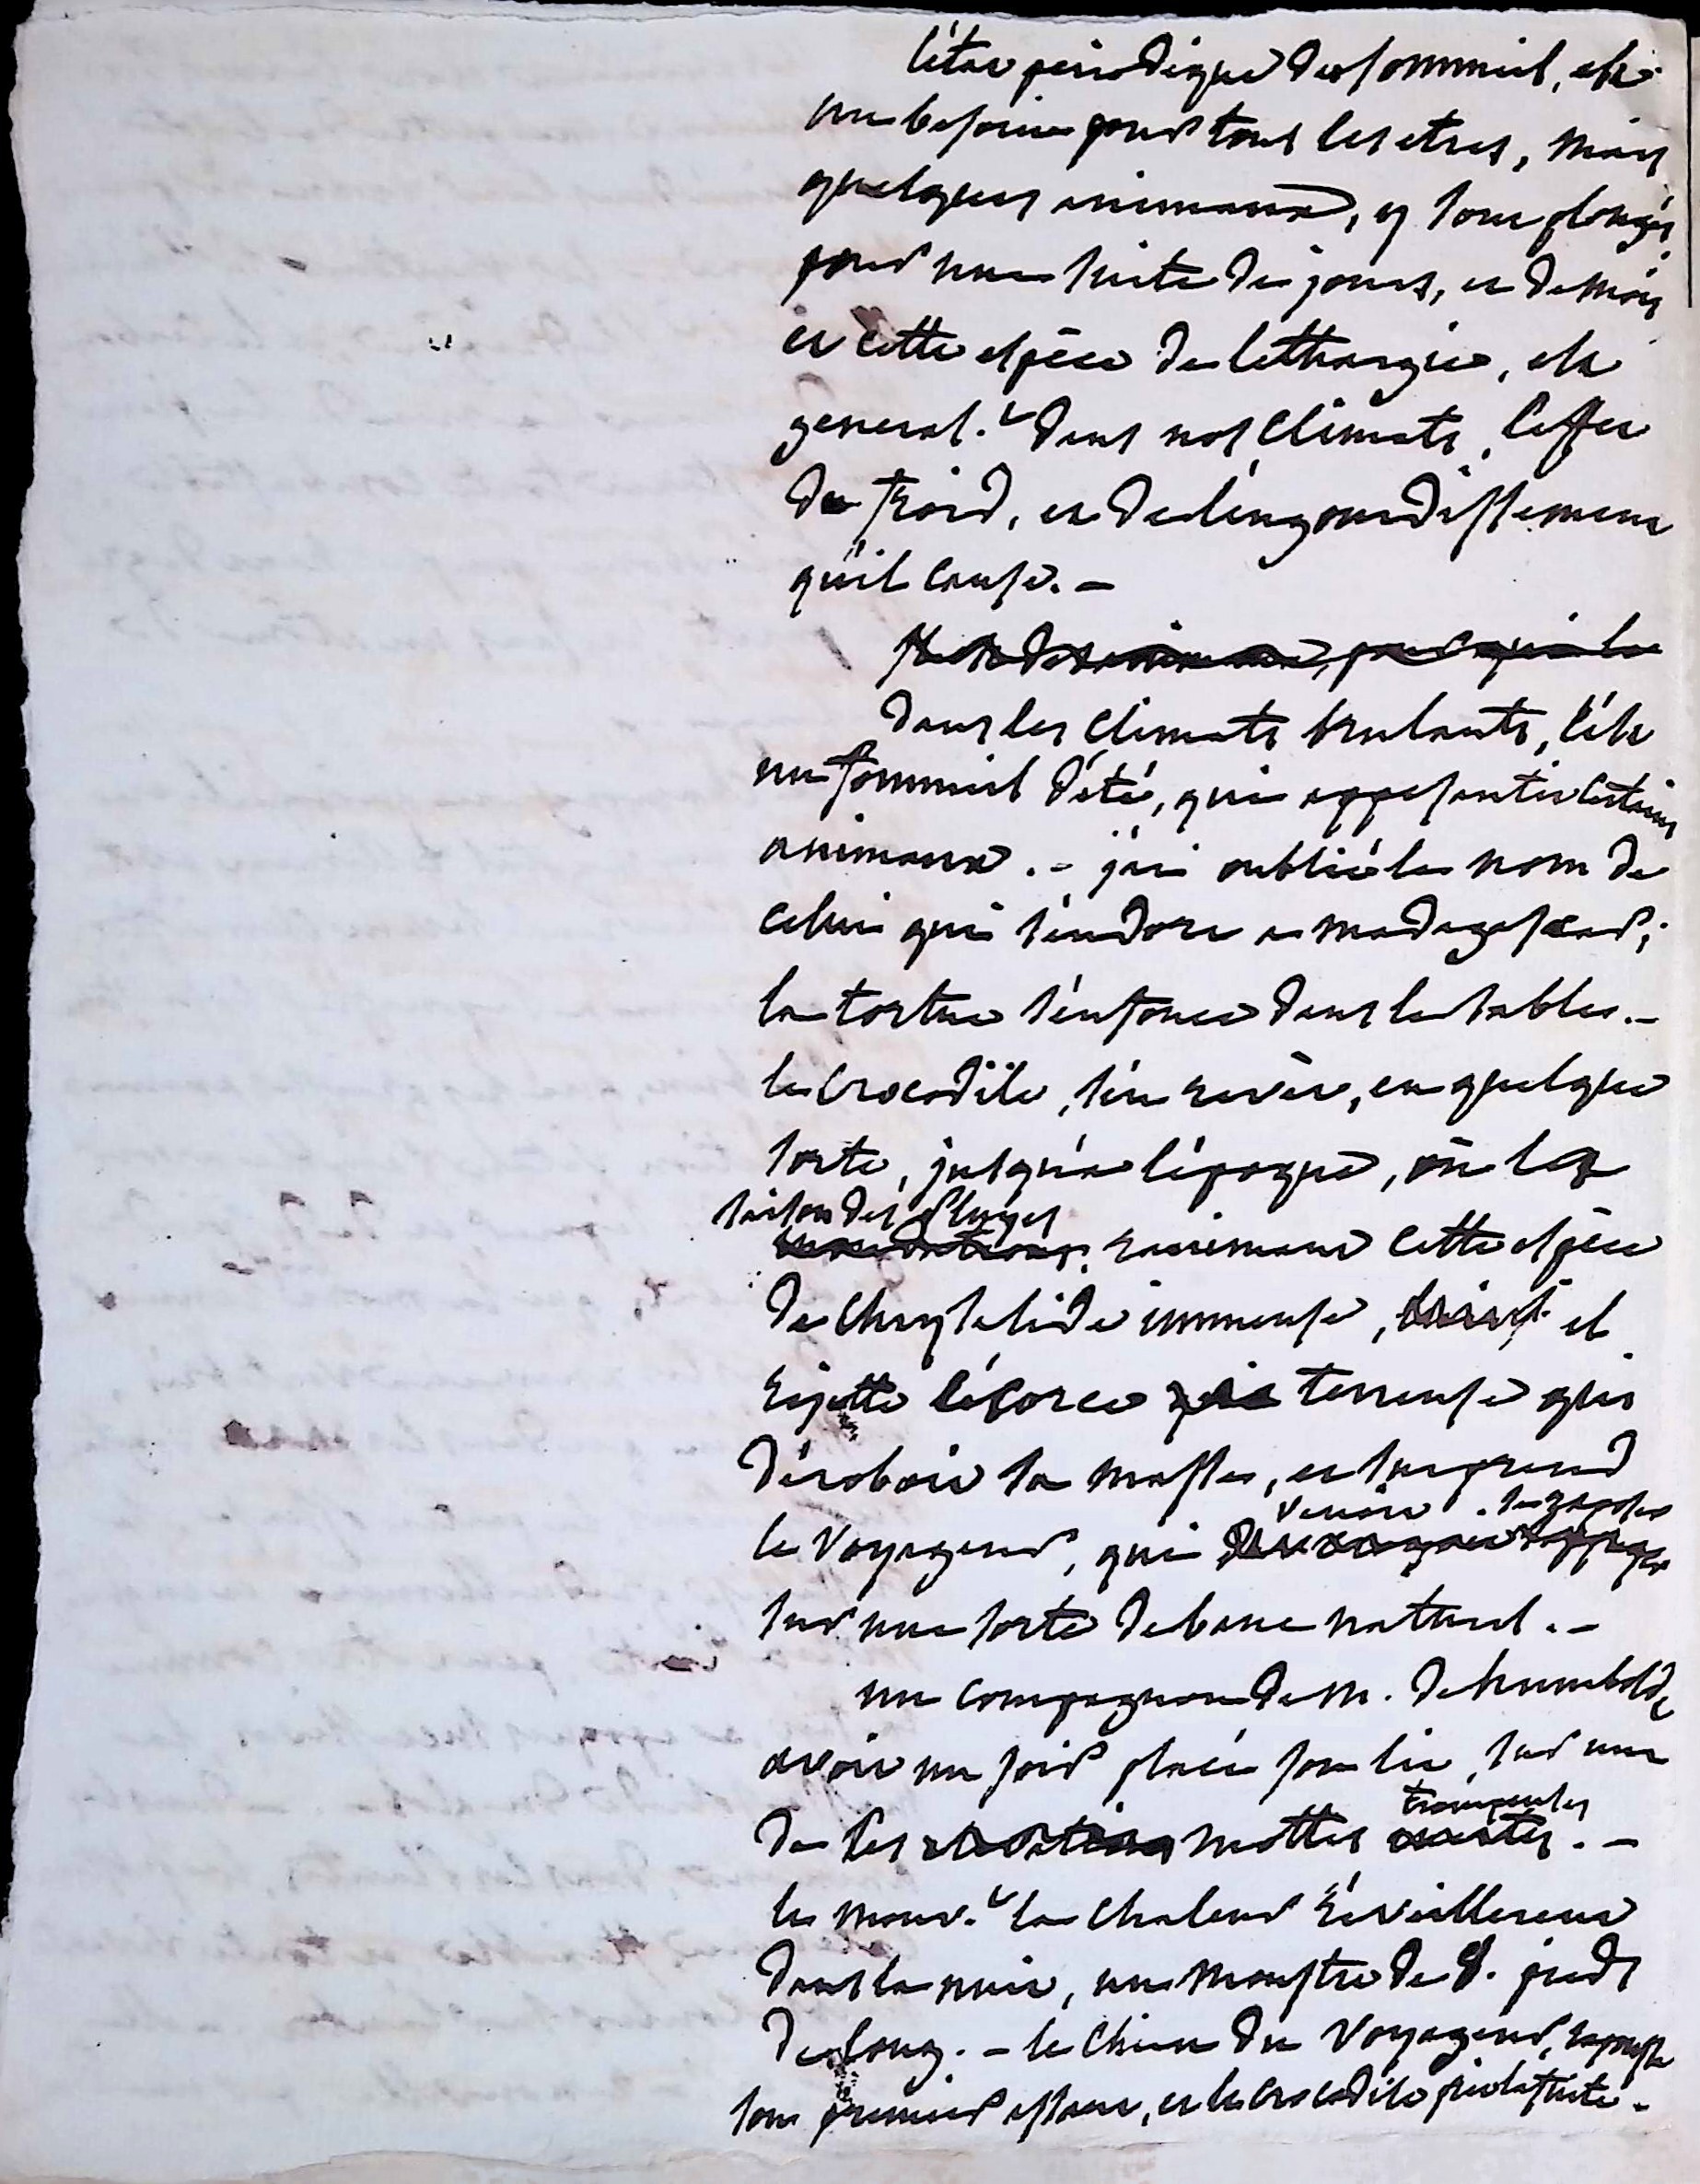 l'état periodique du sommeil, est
un besoin pour tous les etres, mais
quelques animaux, y sont plongés
pour une suite de jours, et de mois
et cette espèce de lethargie, est
general.t dans nos climats, l'effet
du froid, et de l'engourdissement
qu'il cause. -
dans les climats brulants, c'est
un sommeil d'été, qui appesantit certains
animaux. - j'ai oublié le nom de
celui qui s'endort a madagascar;
la tortue s'enfonce dans le sable. -
le crocodile, s'en revêt, en quelque
sorte, jusqu'a l'époque, où la
saison des pluyes
ranimant cette espèce
de chrysalide immense, el
rejette l'écorce terreuse qui
déroboit sa masse, et surprend
venoit
le voyageur, qui
sur une sorte de banc naturel. -
un compagnon de M. de humboldt
avoit un soir placé son lit, sur une
trompeuses
de ces mottes . -
le mouv.t la chaleur réveillerent
dans la nuit, un monstre de 8. pieds
de long. - le chien du voyageur, repousse
son premier assaut, et le crocodile prit la fuite. -